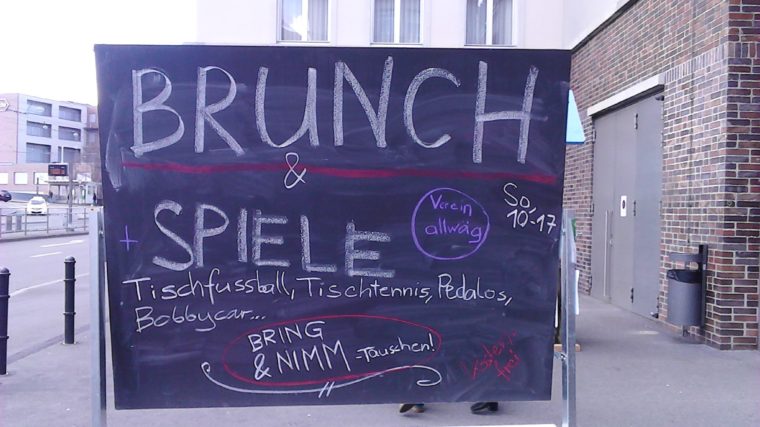 BRUNCH
&
+ SPIELE
Verein
allwäg
So,
10-17
Tischfussball, Tischtennis, Pedalos,
Bobbycar...
BRING
& NIMM -Tauschen!